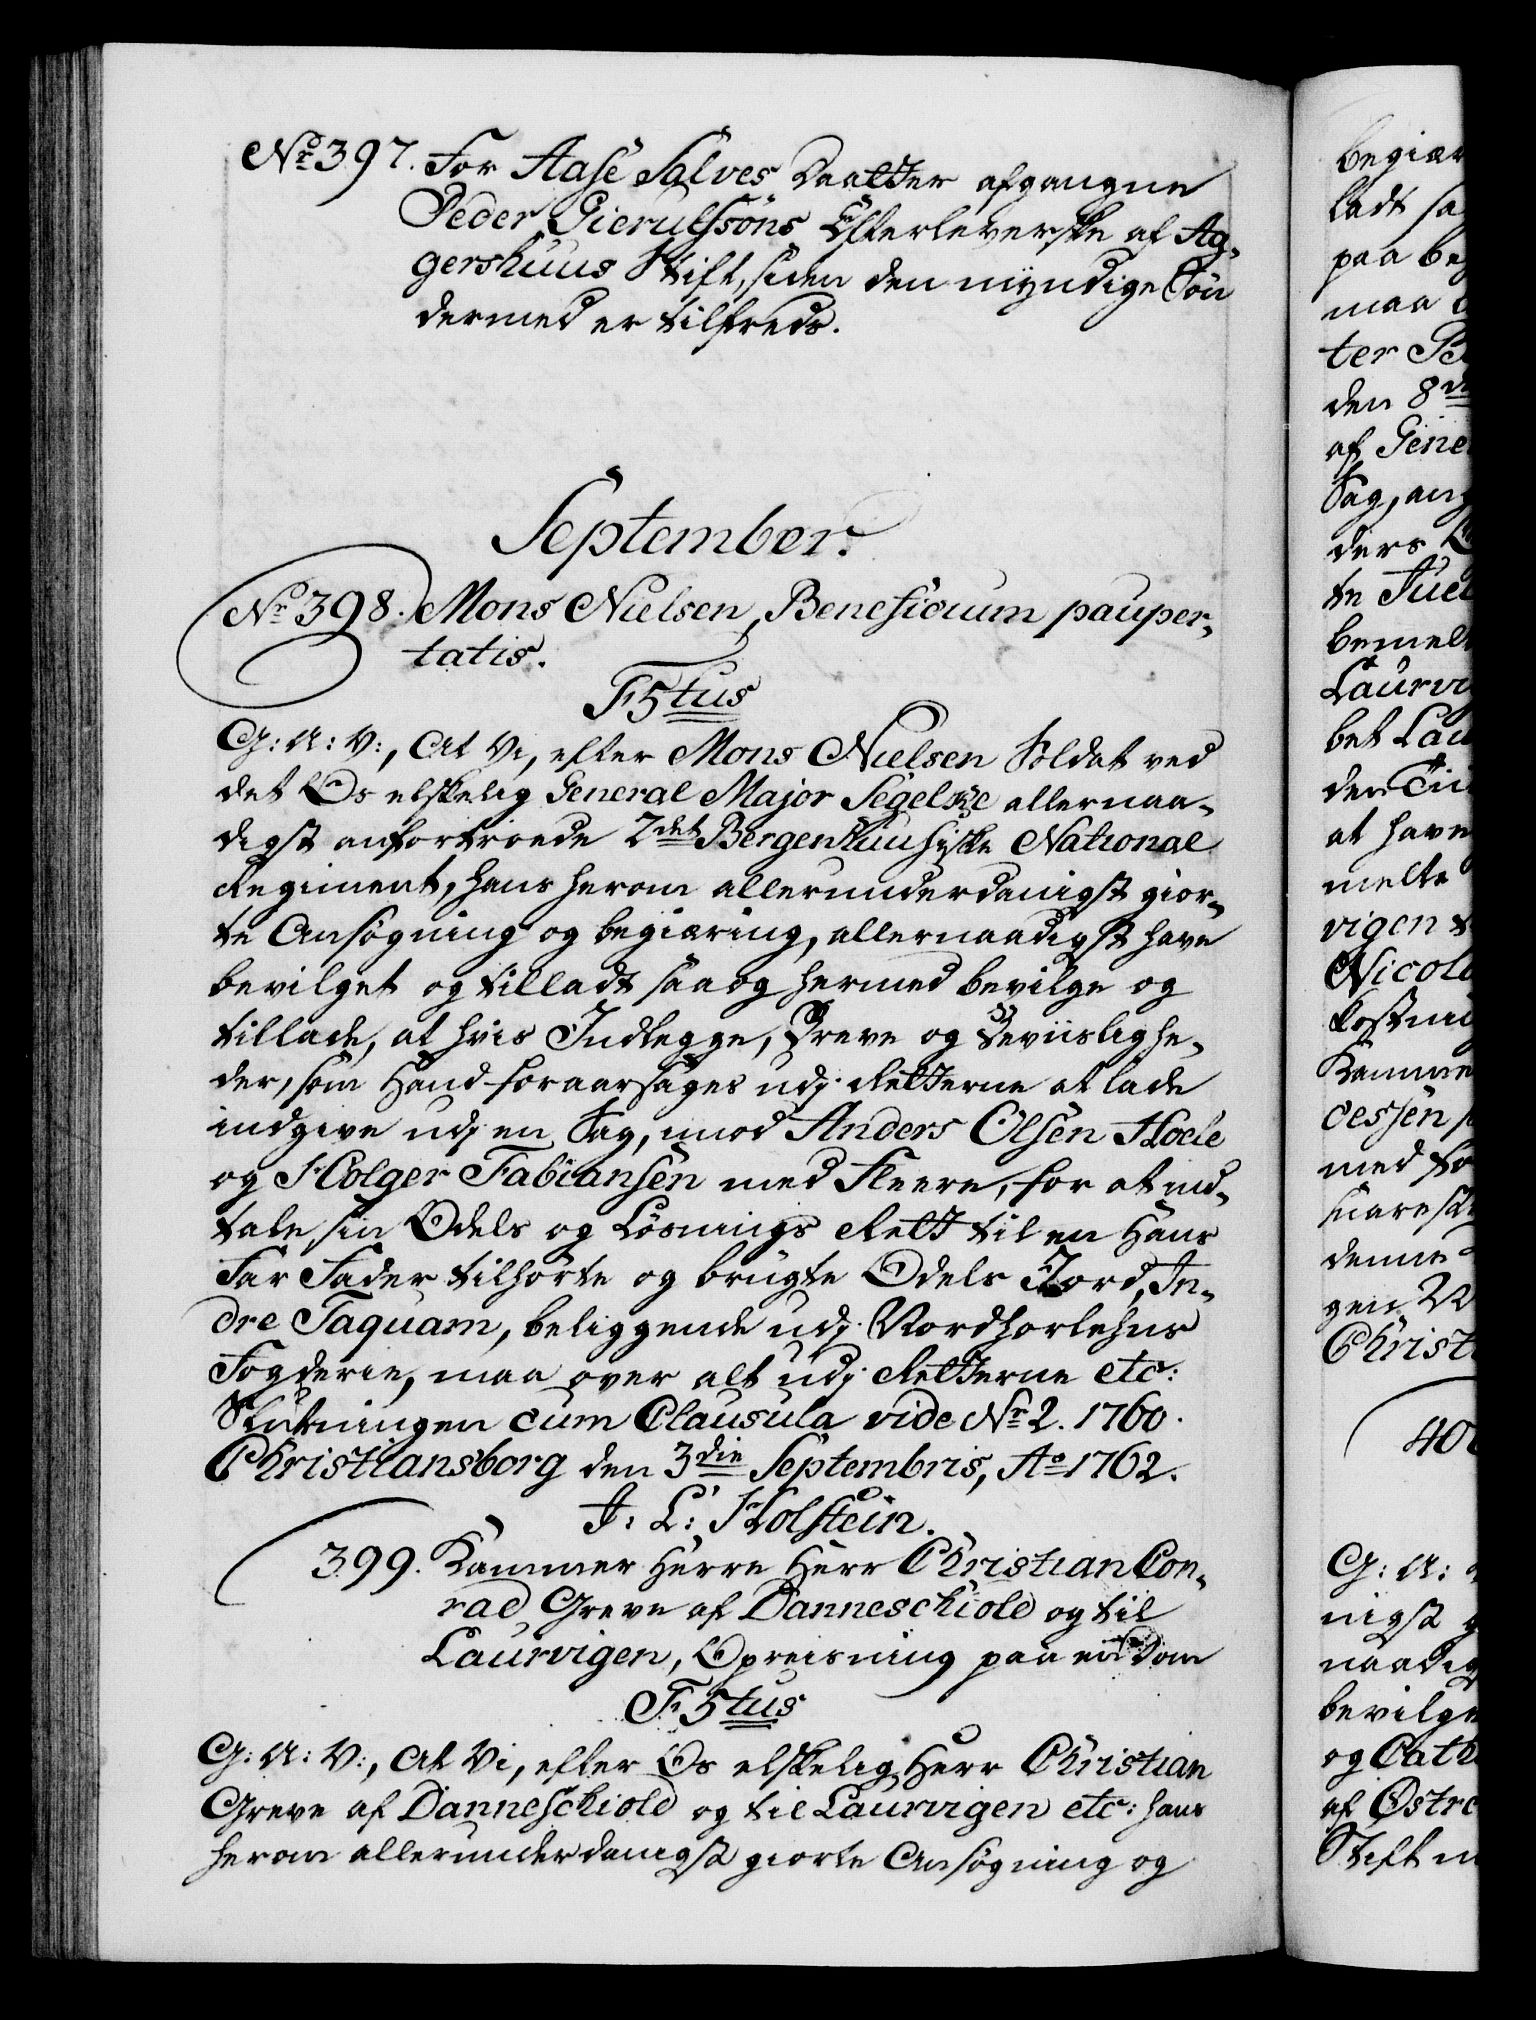 No 397. For Aase Salves Daatter afgangne
Peder Gierulssøns Efterleverske af Ag-
gershuus Stift, siden den myndige Søn
dermed er tilfreds.
September.
Nr 398. Mons Nielsen, Beneficium pauper-
tatis.
F5tus
G: A: V:, At Vi, efter Mons Nielsen Soldat ved
det Os elskelig General Major Segelke allernaa-
digst anfortroede 2det Bergenhuusiske National
Regiment, hans herom allerunderdanigst gior-
te Ansøgning og begiæring, allernaadigst have
bevilget og tilladt saa og hermed bevilge og
tillade, at hvis Indlegge, Breve og Beviislighe-
der, som Hand foraarsages udj Retterne at lade
indgive udj en Sag, imod Anders Olsen Hole
og Holger Fabiansen med Fleere, for at ind-
tale sin Odels og Løsnings Rett til en Hans
Far Fader tilhørte og brugte Odels Jord, In-
dre Taquam, beliggende udj Nordhorlehns
Fogderie, maa over alt udj Retterne etc:
Slutningen cum Clausula vide Nr 2. 1760.
Christiansborg den 3die Septembris, Ao 1762.
J: L: Holstein.
399. Kammer Herre Herr Christian Con-
rad Greve af Danneschiold og til
Laurvigen, Opreisning paa en Dom
F5tus
G: A: V:, At Vi, efter Os elskelig Herr Christian
Greve af Danneschiold og til Laurvigen etc: hans
herom allerunderdanigst giorte Ansøgning og
begiær
ladt sa
paa be
maa
ter
den 8de
af Gene
Sag, an
ders
te Juel
bemel
Laurvi
bet Lau
den Tid
at have
melte
vigen t
Nicola
kostni
Kamme
cessen
med fo
snarest
denne
gen
Christi
400
G: A:
nigst g
naadig
bevilge
og Cath
af Østre
Stift m